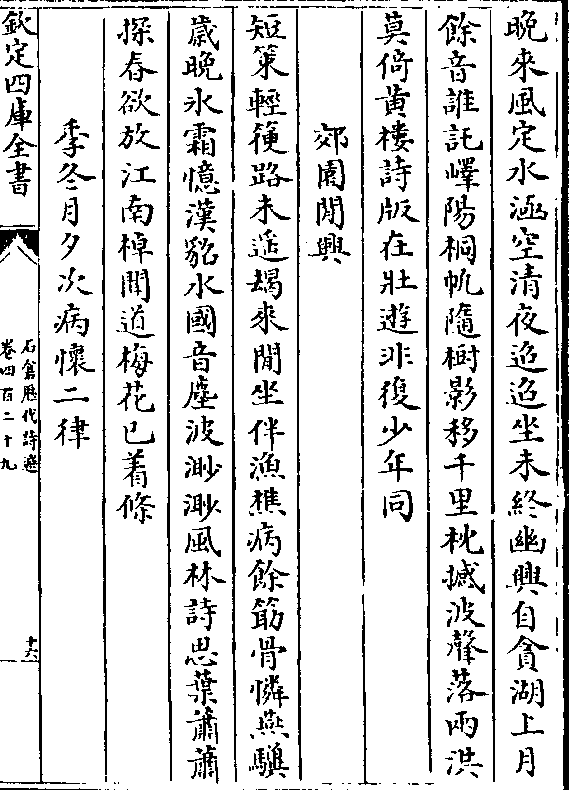 晚來風定水涵空清夜迢迢坐未終幽興自貪湖上月
餘音誰託嶧陽桐帆隨樹影移千里枕撼波聲落兩洪
莫倚黃樓詩版在壯遊非復少年同
郊園閒興
短策輕筇路未遥朅來閒坐伴漁樵病餘筋骨憐燕驥
歲晚氷霜憶漢貂水國音塵波渺渺風林詩思葉蕭蕭
探春欲放江南棹聞道梅花已着條
季冬月夕次病懷二律
欽定四庫全書
石倉歷代詩選
卷四百二十九
十六